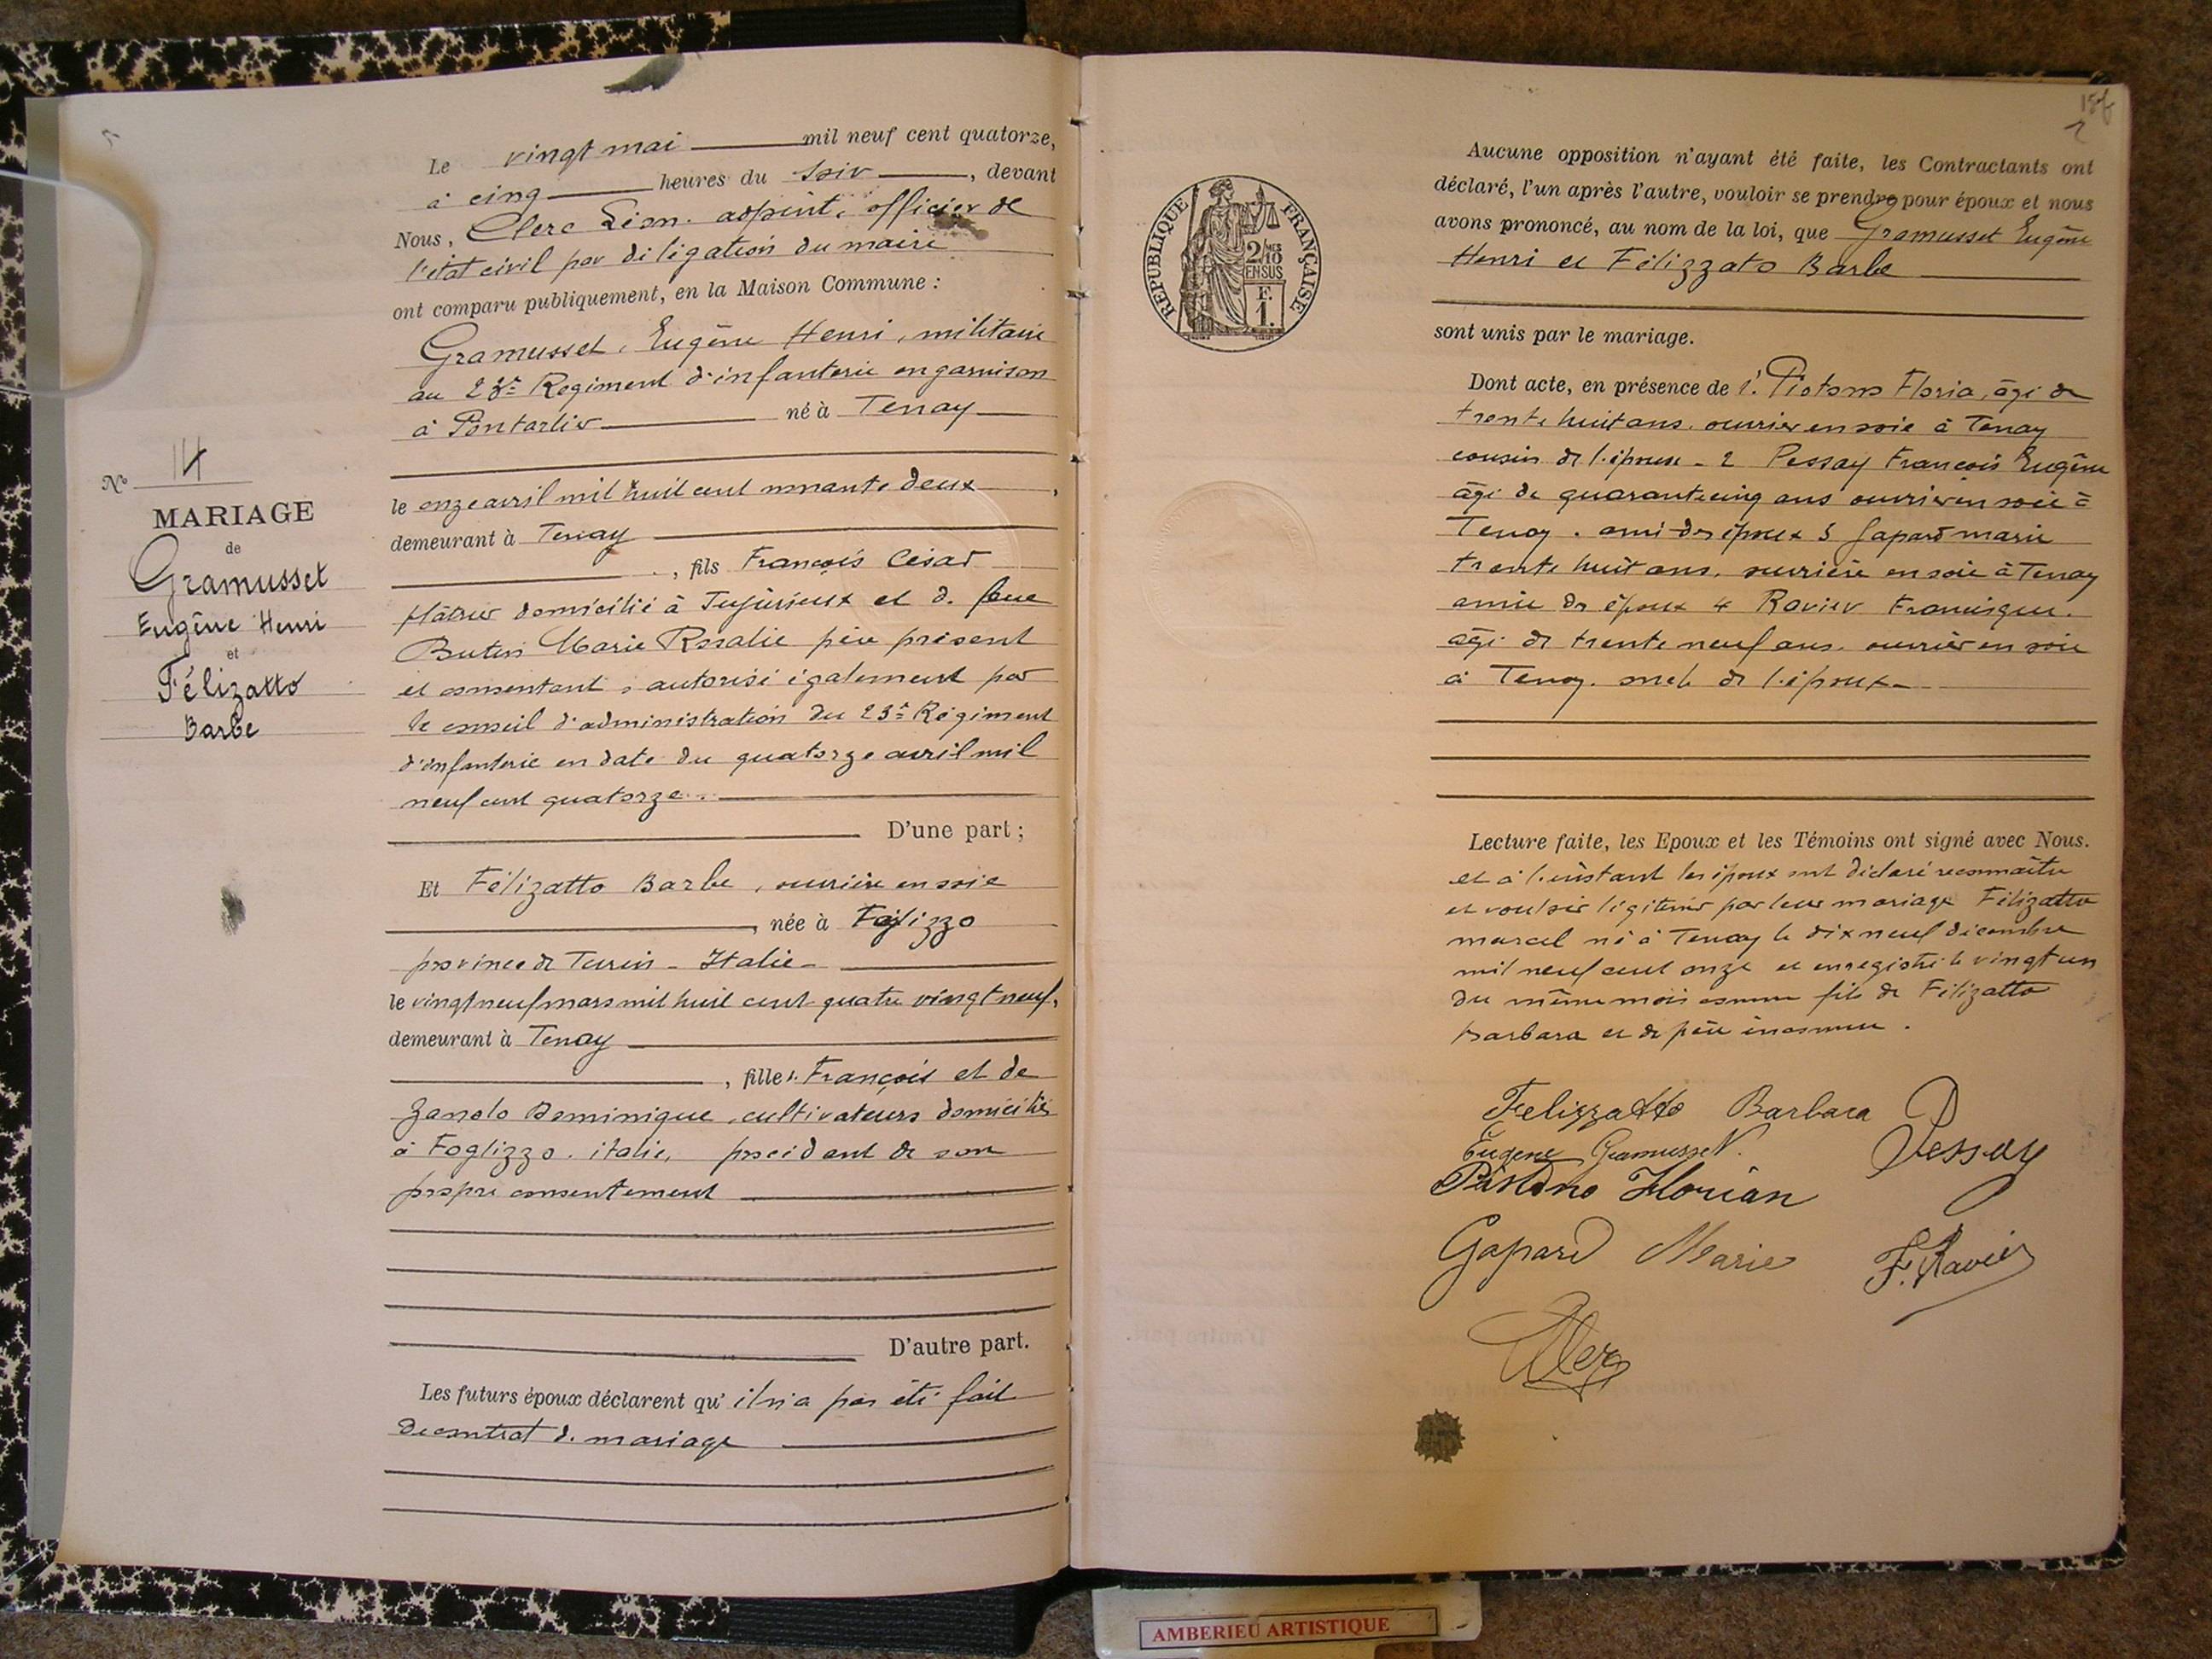 Le vingt mai mil neuf cent quatorze,
à cinq heures du soir, devant
Nous, Clerc Léon adjoint, officier de
l'état civil par délégation du maire
ont comparu publiquement, en la Maison Commune :
Gramusset, Eugène Henri, militaire
au 23e Régiment d'infanterie en garnison
à Pontarlier né à Tenay
le onze avril mil huit cent nonante deux,
demeurant à Tenay
, fils François César
plâtrier domicilié à Jujurieux et de feue
Butin Marie Rosalie père présent
et consentant, autorisé également par
le conseil d'administration du 23e Régiment
d'infanterie en date du quatorze avril mil
neuf cent quatorze.
D'une part ;
Et Félizatto Barbe, ouvrière en soie
, née à Foglizzo
province de Turin - Italie -
le vingt neuf mars mil huit cent quatre vingt neuf,
demeurant à Tenay
, fille François et de
Zanolo Dominique, cultivateurs domiciliés
à Foglizzo. italie, procédant de son
propre consentement
D'autre part.
Les futurs époux déclarent qu'il n'a pas été fait
de contrat de mariage
No 14
MARIAGE
de
Gramusset
Eugène Henri
et
Félizatto
Barbe
2
REPUBLIQUE FRANÇAISE
2/10 MES
EN SUS
F.
1.
Aucune opposition n'ayant été faite, les Contractants ont
déclaré, l'un après l'autre, vouloir se prendre pour époux et nous
avons prononcé, au nom de la loi, que Gramusset Eugène
Henri et Félizzato Barbe
sont unis par le mariage.
Dont acte, en présence de 1. Floria, âgé de
trente huit ans. ouvrier en soie à Tenay
cousin de l'épouse - 2 Pessay François Eugène
âgé de quarante cinq ans ouvrier en soie à
Tenay. ami des époux 3 Gapard marie
trente huit ans, ouvrière en soie à Tenay
amie des époux 4 Ravier Francisque.
âgé de trente neuf ans. ouvrier en soie
à Tenay. de l'époux -
Lecture faite, les Epoux et les Témoins ont signé avec Nous.
et à l'instant les époux ont déclaré reconnaître
et vouloir légitimer par leur mariage Félizatto
marcel né à Tenay le dix neuf décembre
mil neuf cent onze et enregistré le vingt un
du même mois comme fils de Félizatto
Barbara et de père inconnu.
Felizzatto Barbara
Eugene Gramusset.
Pessay
Florian
Gapard Marie
F. Ravier
Clerc
AMBERIEU ARTISTIQUE